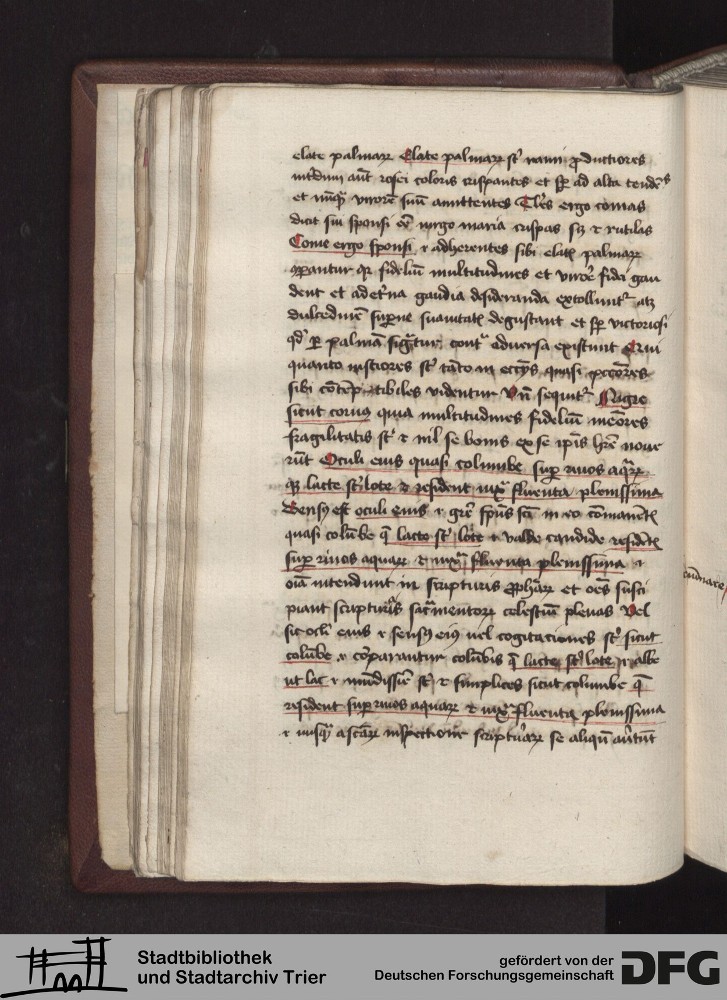 elate palmaꝝ Elate palmaꝝ st᷒ rami ꝓductiores
aut᷒ rosei coloris crispantes et sꝑ ad alta tendẽs
et nũqᷓ virorẽ suũ amittentes Tales ergo comas
dicit sui sponsi eẽ virgo maria crispas sꝫ ⁊ rutilas
Come ergo sponsi ⁊ adherentes sibi elatis palmaꝝ
cõparantur qꝛ fideliũ multitudines et virorẽ fidei gau
dent et ad et᷒na gaudia desideranda extollunt᷒ atꝫ
dulcedinẽ suꝑne suauitatis degustant et sꝑ victoriosi
qd᷒ ꝑ palmã sig᷒tur contᷓ adversa existunt Qui
quanto iustiores st᷒ tãto in occĩs quasi pccõres
sibi cõtẽptibiles videntur Vñ sequit᷒ Nigre
sicut corvus quia multitudines fideliũ meõres
fragilitatis st᷒ ⁊ nil se bonis ex se ipĩs hr̃e noue
rũt Oculi eius quasi columbe super rivos aquaꝝ
qᷓ lacte st᷒ lote ⁊ resident iuxᷓ fluenta plenissima
Sensꝰ est oculi eius ⁊ grẽ spũs scĩ in eo cõmanentis
quasi colũbe q̃ lacte st᷒ lote ⁊ valde candide residẽt
suꝑ rivos aquaꝝ ⁊ iuxᷓ fluenta plenissima ⁊
oĩa intendunt in scripturis ꝓphãꝝ et oẽs susci
piant scripturas sac᷒mentoꝝ celestiũ plenas Vel
sic ocl̃i eius ⁊ sensꝰ eiꝰ vel cogitaciones st᷒ sicut
colũbe ⁊ cõparantur colũbis q̃ lacte st᷒ lote ⁊ albe
ut lac ⁊ mundissime st᷒ ⁊ simplices sicut columbe q̃
resident suꝑ rivos aquaꝝ ⁊ iuxᷓ fluenta plenissima
⁊ nusqᷓ a scãꝝ inspectione scripturaꝝ se aliqñ av᷒tũt
Stadtbibliothek
und Stadtarchiv Trier
gefördert von der
Deutschen Forschungsgemeinschaft
DFG